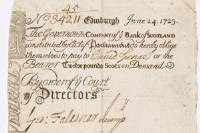 45
No. 34211 Edinburgh June 24. 1723.
The Governor & Company of ye Bank of Scotland
constituted by Act of Parliament do hereby oblige
themselves to pay to David Spence or the
Bearer Twelve pounds Scots on Demand
By order of ye Court
of
Directors